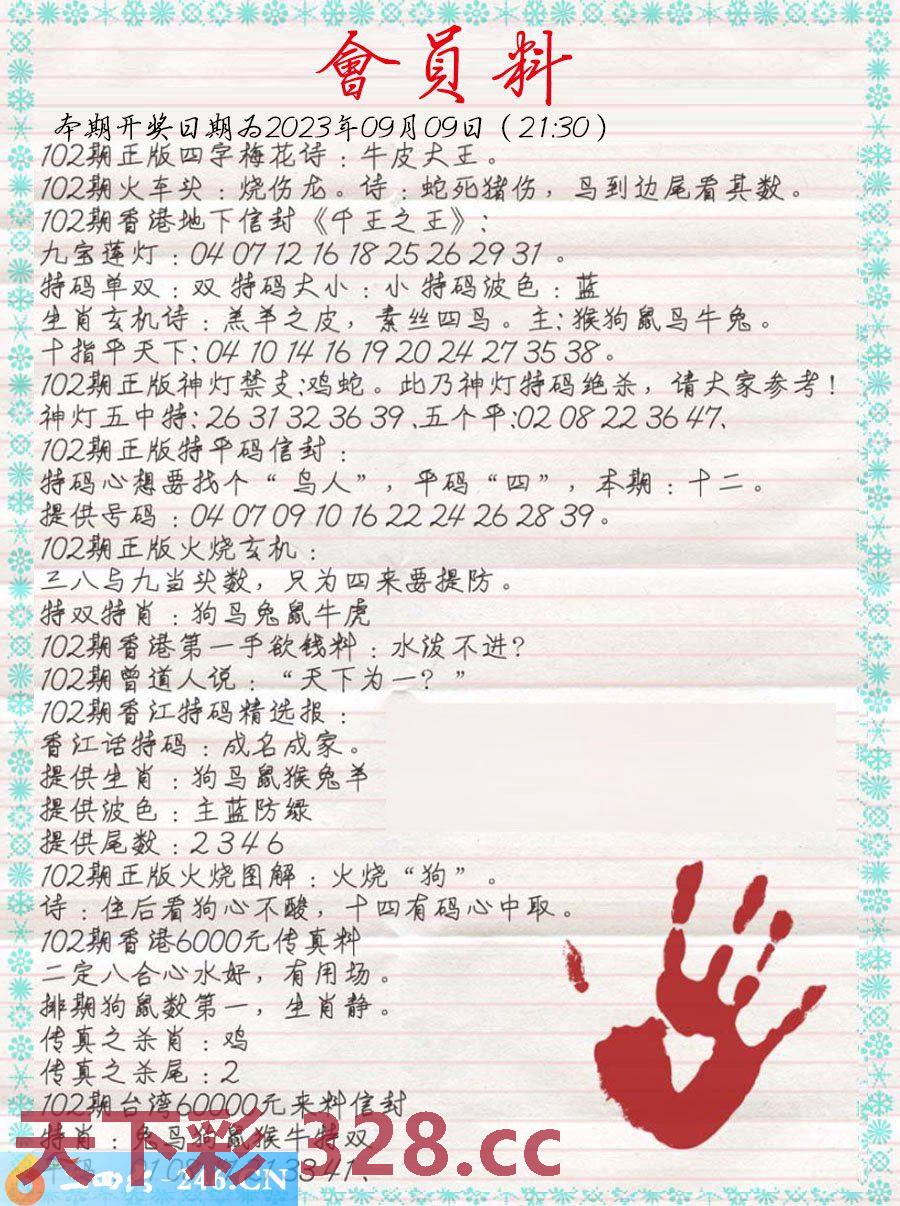 會員料
本期开奖日期为2023年09月09日（21:30）
102期正版四字梅花诗：牛皮大王。
102期火车头：烧伤龙。诗：蛇死猪伤，鸟到边尾看其数。
102期香港地下信封《千王之王》:
九宝莲灯：04 07 12 16 18 25 26 29 31 。
特码单双：双 特码大小：小 特码波色：蓝
生肖玄机诗：羔羊之皮，素丝四鸟。主:猴狗鼠鸟牛兔。
十指平天下:04 10 14 16 19 20 24 27 35 38。
102期正版神灯禁支:鸡蛇。此乃神灯特码绝杀，请大家参考！
神灯五中特:26 31 32 36 39、五个平:02 08 22 36 47、
102期正版特平码信封：
特码心想要找个“鸟人”，平码“四”，本期：十二。
提供号码：04 07 09 10 16 22 24 26 28 39。
102期正版火烧玄机：
三八与九当头数，只为四来要提防。
特双特肖：狗鸟兔鼠牛虎
102期香港第一手欲钱料：水泼不进？
102期曾道人说：“天下为一？”
102期香江特码精选报：
香江话特码：成名成家。
提供生肖：狗鸟鼠猴兔羊
提供波色：主蓝防绿
提供尾数：2 3 4 6
102期正版火烧图解：火烧“狗”。
诗：住后看狗心不酸，十四有码心中取。
102期香港6000元传真料
二定八合心水好，有用场。
排期狗鼠数第一，生肖静。
传真之杀肖：鸡
传真之杀尾：2
102期台湾60000元来料信封
特肖：兔鸟狗鼠猴牛特双
天下彩 328.cc
01 08 33 41、
246.CN